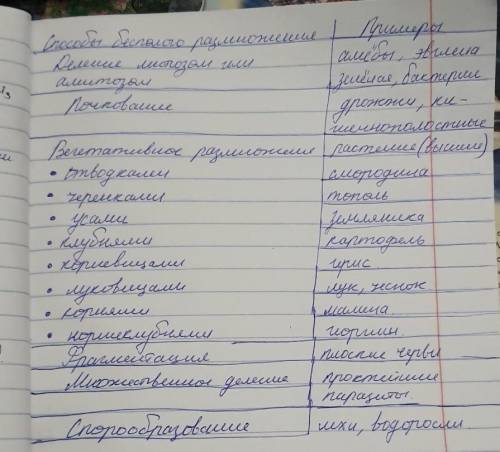 Способы бесполого размножения | Примеры
Деление митозом или | амёбы, эвглена
амитозом | зелёная, бактерии
Почкование | дрожжи, ки-
шечнополостные
Вегетативное размножение | растения (высшие)
• отводками | смородина
• черенками | тополь
• усами | земляника
• клубнями | картофель
• корневищами | ирис
• луковицами | лук, чеснок
• корнями | малина
• корнеклубнями | георгин.
Фрагментация | плоские черви
Множественное деление | простейшие
паразиты.
Спорообразование | мхи, водоросли.